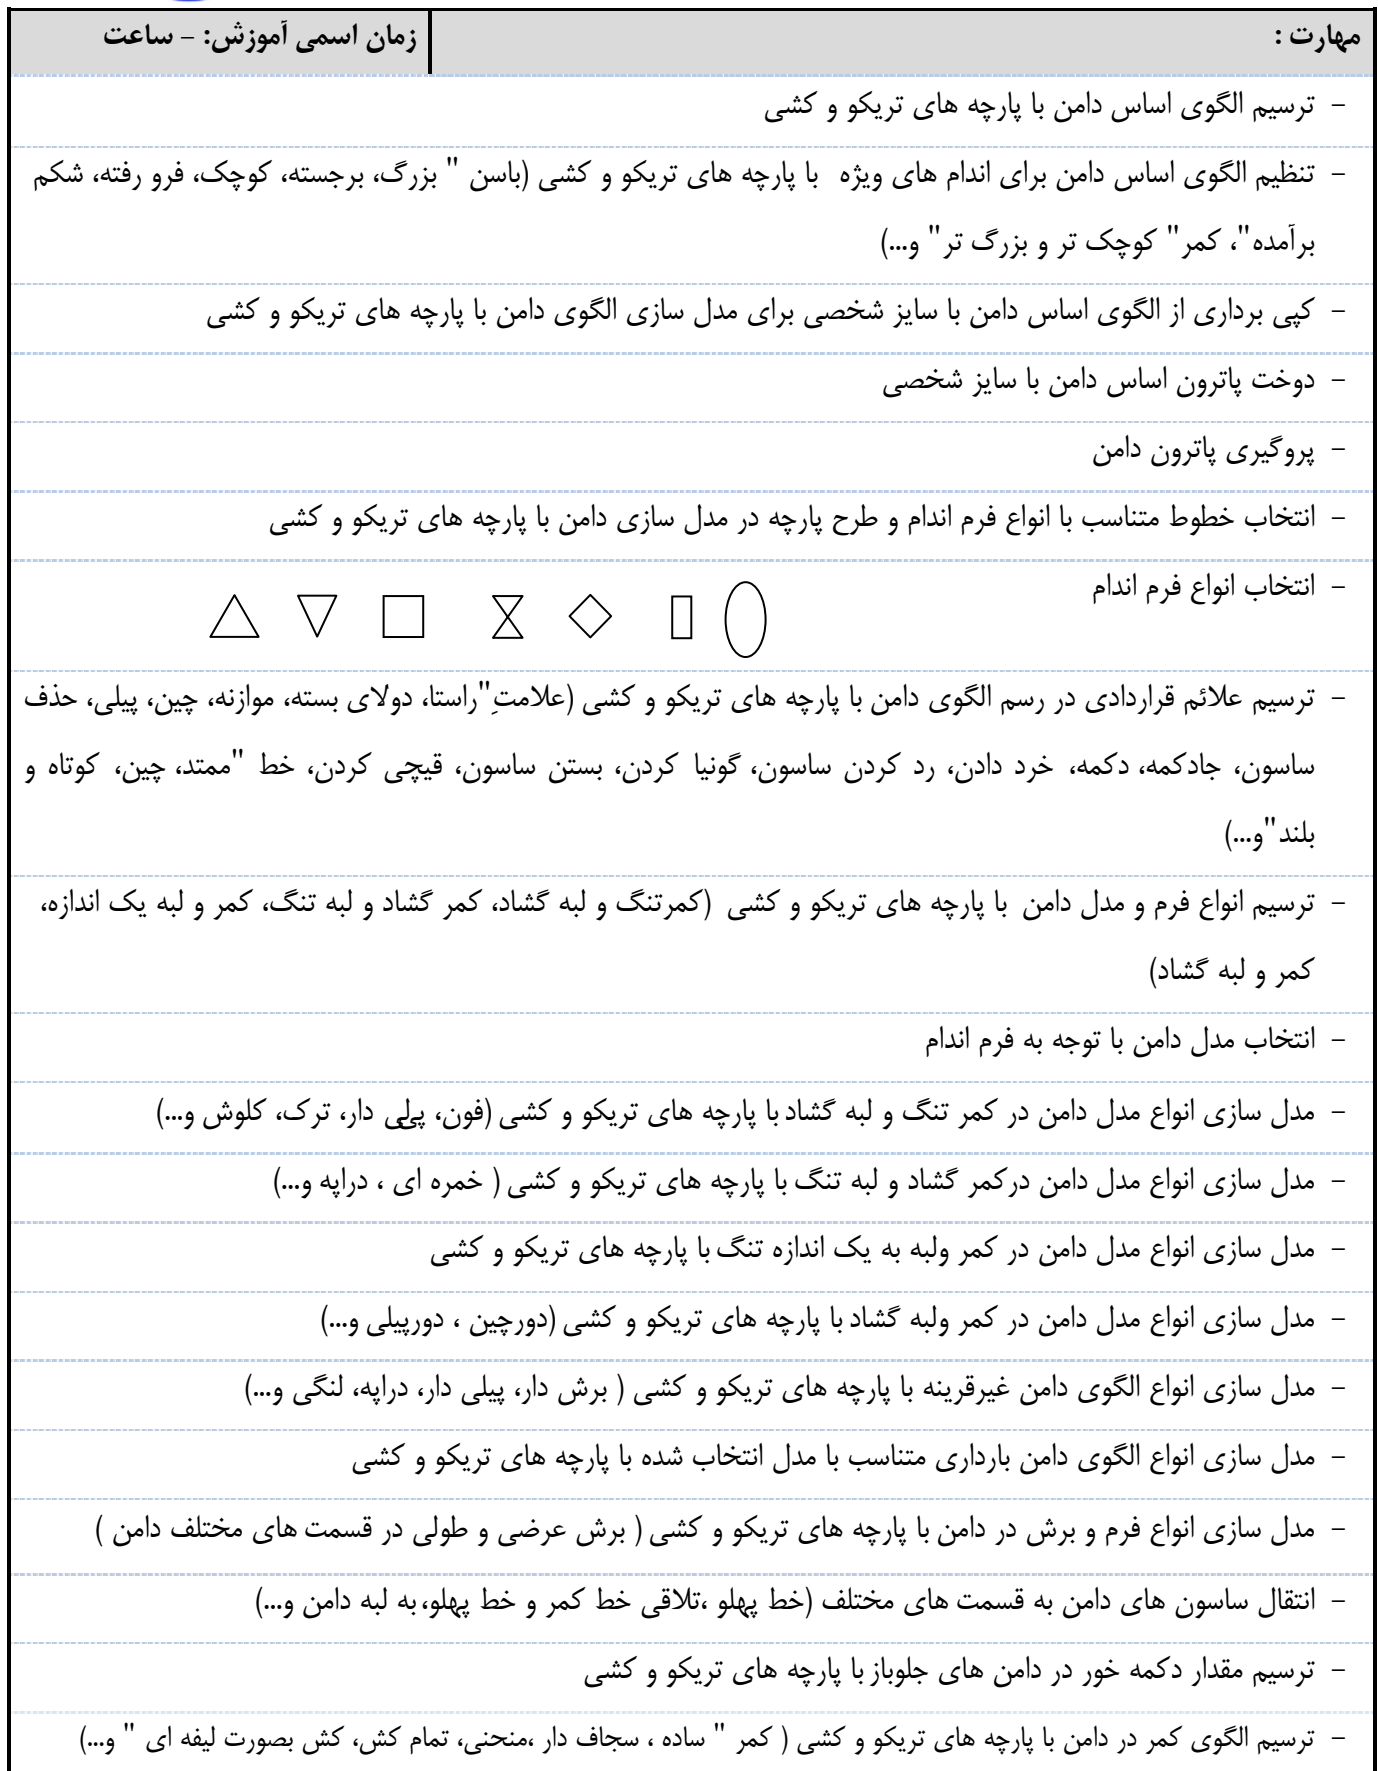 مهارت :
زمان اسمی آموزش: - ساعت
- ترسیم الگوی اساس دامن با پارچه های تریکو و کشی
- تنظیم الگوی اساس دامن برای اندام های ویژه با پارچه های تریکو و کشی (باسن " بزرگ، برجسته، کوچک، فرو رفته، شکم
برآمده"، کمر" کوچک تر و بزرگ تر" و...)
- کپی برداری از الگوی اساس دامن با سایز شخصی برای مدل سازی الگوی دامن با پارچه های تریکو و کشی
- دوخت پاترون اساس دامن با سایز شخصی
- پروگیری پاترون دامن
- انتخاب خطوط متناسب با انواع فرم اندام و طرح پارچه در مدل سازی دامن با پارچه های تریکو و کشی
- انتخاب انواع فرم اندام
- ترسیم علائم قراردادی در رسم الگوی دامن با پارچه های تریکو و کشی (علامتِ"راستا، دولای بسته، موازنه، چین، پیلی، حذف
ساسون، جادکمه، دکمه، خرد دادن، رد کردن ساسون، گونیا کردن، بستن ساسون، قیچی کردن، خط "ممتد، چین، کوتاه و
بلند"و...)
- ترسیم انواع فرم و مدل دامن با پارچه های تریکو و کشی (کمرتنگ و لبه گشاد، کمر گشاد و لبه تنگ، کمر و لبه یک اندازه،
کمر و لبه گشاد)
- انتخاب مدل دامن با توجه به فرم اندام
- مدل سازی انواع مدل دامن در کمر تنگ و لبه گشاد با پارچه های تریکو و کشی (فون، پلی دار، ترک، کلوش و...)
- مدل سازی انواع مدل دامن درکمر گشاد و لبه تنگ با پارچه های تریکو و کشی ( خمره ای ، دراپه و...)
- مدل سازی انواع مدل دامن در کمر ولبه به یک اندازه تنگ با پارچه های تریکو و کشی
- مدل سازی انواع مدل دامن در کمر ولبه گشاد با پارچه های تریکو و کشی (دورچین ، دورپیلی و...)
- مدل سازی انواع الگوی دامن غیرقرینه با پارچه های تریکو و کشی ( برش دار، پیلی دار، دراپه، لنگی و...)
- مدل سازی انواع الگوی دامن بارداری متناسب با مدل انتخاب شده با پارچه های تریکو و کشی
- مدل سازی انواع فرم و برش در دامن با پارچه های تریکو و کشی ( برش عرضی و طولی در قسمت های مختلف دامن )
- انتقال ساسون های دامن به قسمت های مختلف (خط پهلو ،تلاقی خط کمر و خط پهلو،به لبه دامن و...)
- ترسیم مقدار دکمه خور در دامن های جلوباز با پارچه های تریکو و کشی
- ترسیم الگوی کمر در دامن با پارچه های تریکو و کشی ( کمر " ساده ، سجاف دار ،منحنی، تمام کش، کش بصورت لیفه ای " و...)